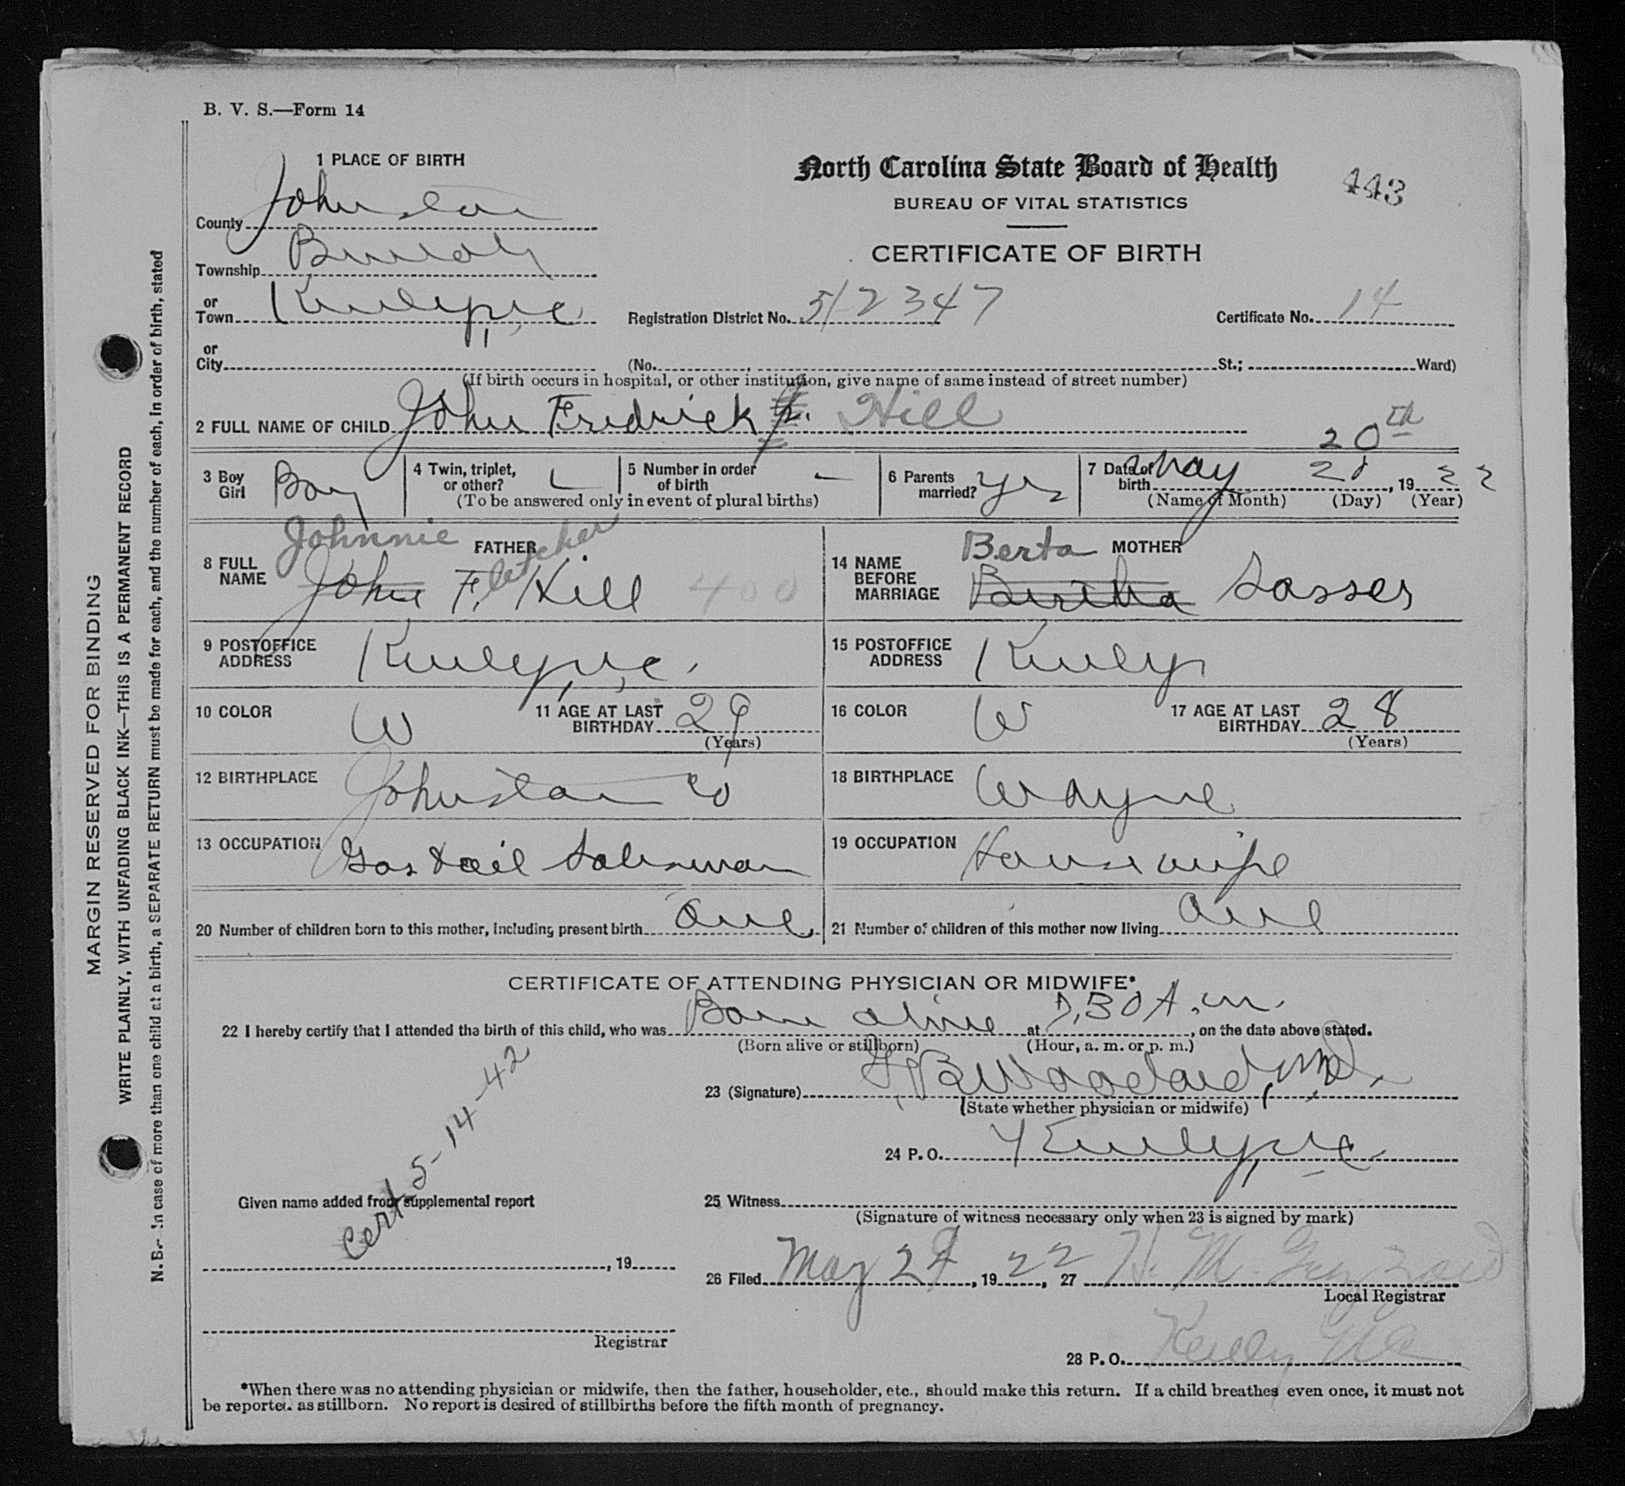 B. V. S.—Form 14
1 PLACE OF BIRTH
North Carolina State Board of Health
443
BUREAU OF VITAL STATISTICS
County Johnston
CERTIFICATE OF BIRTH
Township
or Town Kenly, N.C.
Registration District No. 512347
Certificate No. 14
or City
(No. , St.; Ward)
(If birth occurs in hospital, or other institution, give name of same instead of street number)
2 FULL NAME OF CHILD John Fredrick Jr. Hill
20th
3 Boy Girl Boy
4 Twin, triplet, or other? -
5 Number in order of birth -
(To be answered only in event of plural births)
6 Parents married? Yes
7 Date of birth May 21, 1922
(Name of Month) (Day) (Year)
Johnnie FATHER Fletcher
8 FULL NAME John F. Hill 400
Berta MOTHER
14 NAME BEFORE MARRIAGE Bertha Sasser
9 POSTOFFICE ADDRESS Kenly, N.C.
15 POSTOFFICE ADDRESS Kenly
10 COLOR W
11 AGE AT LAST BIRTHDAY 29 (Years)
16 COLOR W
17 AGE AT LAST BIRTHDAY 28 (Years)
12 BIRTHPLACE Johnston Co
18 BIRTHPLACE Wayne
13 OCCUPATION Gas & oil Salesman
19 OCCUPATION Housewife
20 Number of children born to this mother, including present birth One
21 Number of children of this mother now living One
CERTIFICATE OF ATTENDING PHYSICIAN OR MIDWIFE*
22 I hereby certify that I attended the birth of this child, who was Born alive at 7.30 A.m., on the date above stated.
(Born alive or stillborn) (Hour, a. m. or p. m.)
23 (Signature) Woodard, M.D.
(State whether physician or midwife)
24 P. O. Kenly, N.C.
Cert. 5-14-42
Given name added from supplemental report
25 Witness
(Signature of witness necessary only when 23 is signed by mark)
, 19
26 Filed May 24, 1922, 27 H. M.
Local Registrar
Registrar
28 P. O. Kenly N C
*When there was no attending physician or midwife, then the father, householder, etc., should make this return. If a child breathes even once, it must not
be reported as stillborn. No report is desired of stillbirths before the fifth month of pregnancy.
MARGIN RESERVED FOR BINDING
WRITE PLAINLY, WITH UNFADING BLACK INK—THIS IS A PERMANENT RECORD
N. B.—In case of more than one child at a birth, a SEPARATE RETURN must be made for each, and the number of each, in order of birth, stated